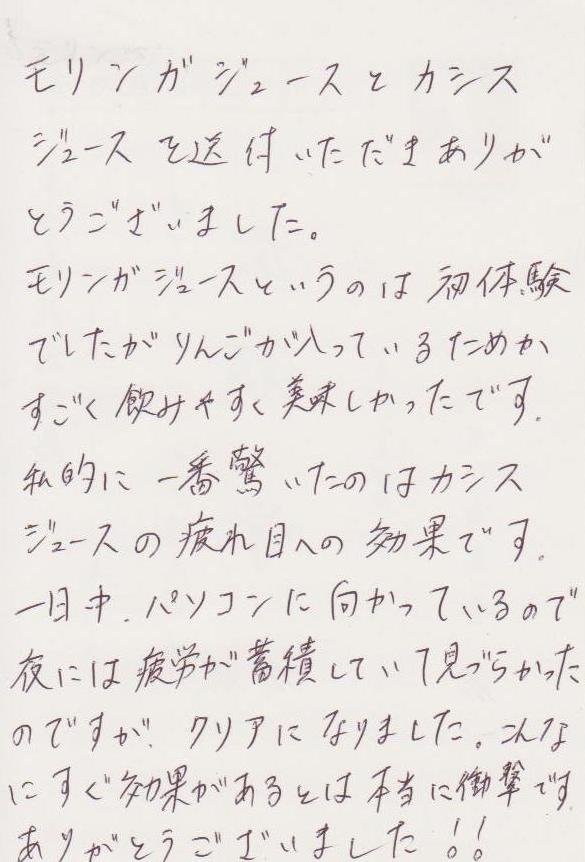 モリンガジュースとカシス
ジュースを送付いただきありが
とうございました。
モリンガジュースというのは初体験
でしたがりんごが入っているためか
すごく飲みやすく美味しかったです。
私的に一番驚いたのはカシス
ジュースの疲れ目への効果です。
一日中、パソコンに向かっているので
夜には疲労が蓄積していて見づらかった
のですが、クリアになりました。こんな
にすぐ効果があるとは本当に衝撃です
ありがとうございました!!